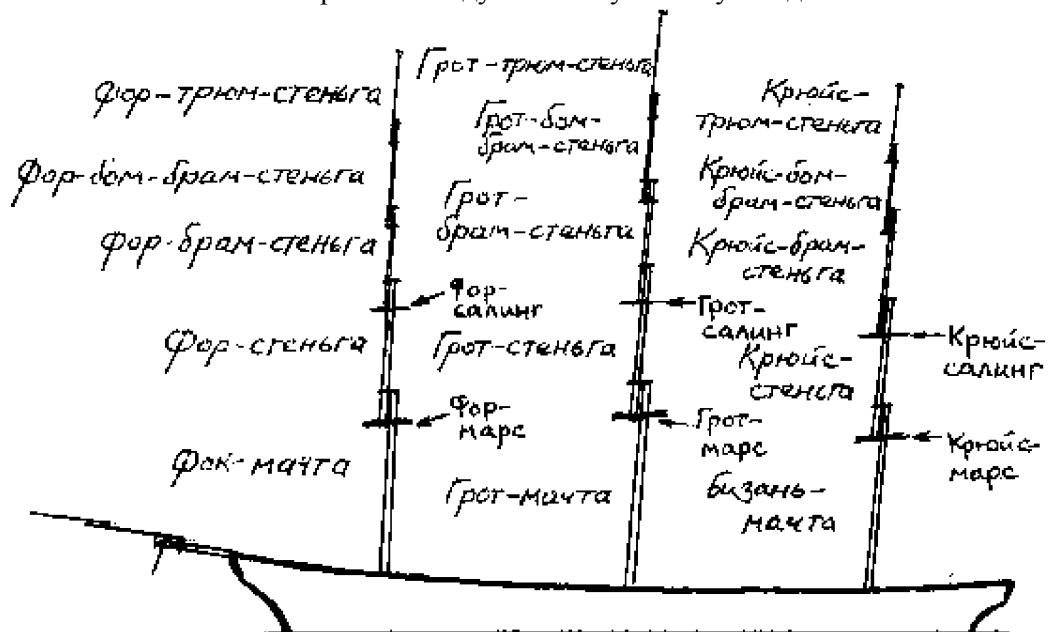 Фор-трюм-стеньга
Фор-бом-брам-стеньга
Фор-брам-стеньга
Фор-
салинг
Фор-стеньга
Фор-
марс
Фок-мачта
Грот-трюм-стеньга
Грот-бом-
брам-стеньга
Грот-
брам-стеньга
Грот-
салинг
Грот-стеньга
Грот-
марс
Грот-мачта
Крюйс-
трюм-стеньга
Крюйс-бом-
брам-стеньга
Крюйс-брам-
стеньга
Крюйс-
салинг
Крюйс-
стеньга
Крюйс-
марс
Бизань-
мачта